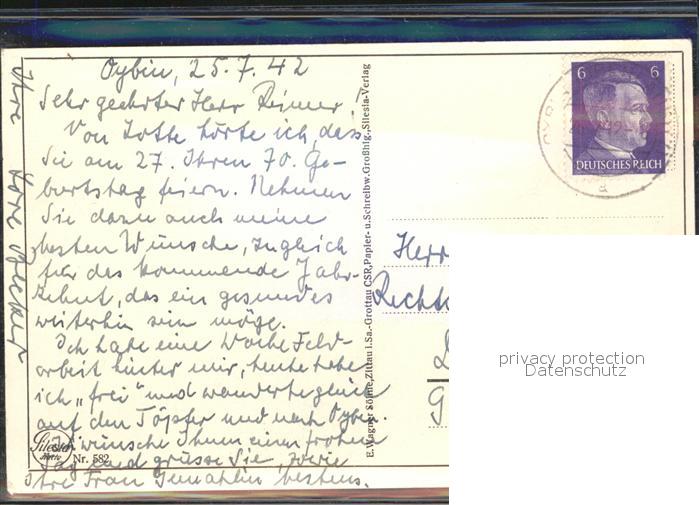 Oybin, 25.7.42
Sehr geehrter Herr Reimer
Von Lotte hörte ich, dass
Sie am 27. Ihren 70. Ge-
burtstag feiern. Nehmen
Sie dazu auch meine
besten Wünsche, zugleich
für das kommende Jahr-
zehnt, das ein gesundes
weiterhin sein möge.
Ich habe eine Woche Feld-
arbeit hinter mir, heute habe
ich „frei" und wanderte
auf den Töpfer und nach Oybin.
Ich wünsche Ihnen einen frohen
Tag und grüsse Sie, sowie
Ihre Frau Gemahlin bestens.
Ihre
Silesia
Nr. 582
E. Wagner Söhne, Zittau i.Sa.-Grottau CSR, Papier- u. Schreibw. Großhlg., Silesia-Verlag
6 6
DEUTSCHES REICH
a
Herr
Rechts
G
privacy protection
Datenschutz